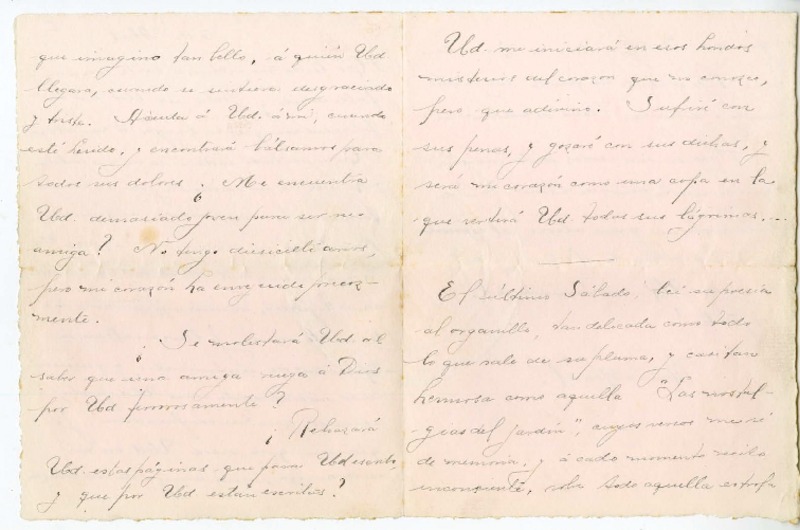 que imagino tan bello, á quién Ud.
llegara, cuando se sintiera desgraciado
y triste. á Ud. á mi, cuando
esté herido, y encontrará bálsamos para
todos sus dolores. ¿Me encuentra
Ud. demasiado joven para ser mi
amiga? No tengo diesisiete años,
pero mi corazón ha envejecido precoz-
mente.
¿Se molestará Ud. al
saber que una amiga ruega á Dios
por Ud fervorosamente?
¿Rechazará
Ud. estas páginas que para Ud
y que por Ud están escritas?
Ud. me iniciará en esos hondos
misterios del corazón que no conozco,
pero que adivino. Sufriré con
sus penas, y gozaré con sus dichas, y
será mi corazón como una copa en la
que vertirá Ud todas sus lágrimas....
El último Sábado, leí su poesía
al organillo, tan delicada como todo
lo que sale de su pluma, y casi tan
hermosa como aquella "Las nostal-
gias del jardín", cuyos versos me sé
de memoria, y á cada momento recito
inconciente, sobre todo aquella estrofa